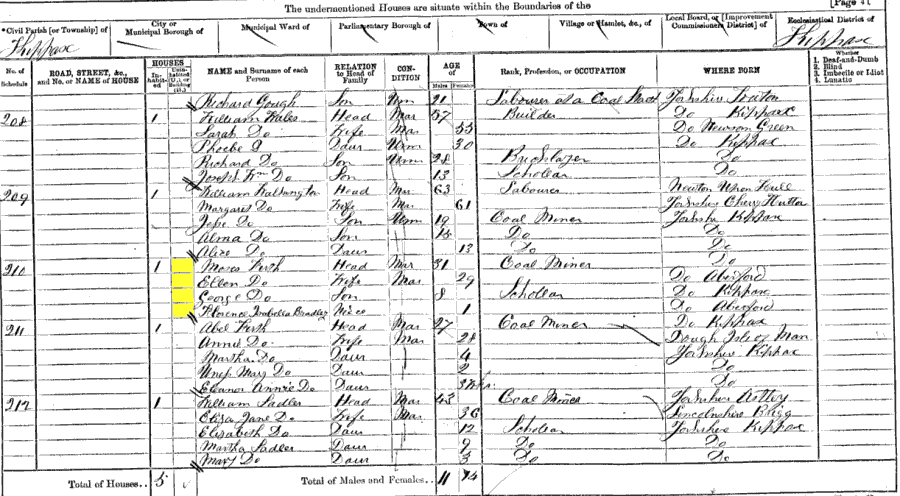 The undermentioned Houses are situate within the Boundaries of the
[Page 41
*Civil Parish [or Township] of
City or Municipal Borough of
Municipal Ward of
Parliamentary Borough of
Town of
Village or Hamlet, &c., of
Local Board, or [Improvement Commissioners District] of
Ecclesiastical District of
Kippax
Kippax
No. of Schedule
ROAD, STREET, &c., and No. or NAME of HOUSE
HOUSES
In-habit-ed
Unin-habited (U.), or Building (B.)
NAME and Surname of each Person
RELATION to Head of Family
CON-DITION
AGE of
Males
Females
Rank, Profession, or OCCUPATION
WHERE BORN
Whether
1. Deaf-and-Dumb
2. Blind
3. Imbecile or Idiot
4. Lunatic
Richard Gough Son Unm 21 Labourer at a Coal Yorkshire
208 1 William Wales Head Mar 57 Builder Do Kippax
Sarah Do Wife Mar 55 Do Newsom Green
Phoebe Daur Unm 30 Do Kippax
Richard Do Son Unm 28 Bricklayer Do
Joseph Wm Do Son 13 Scholar Do
209 1 William Head Mar 63 Labourer Newton Upon Hull
Margaret Do Wife Mar 61 Yorkshire Cherry Hutton
Do Son Unm 19 Coal Miner Yorkshire Kippax
Alma Do Son Do Do
Alice Do Daur 13 Do Do
210 1 Moses Firth Head Mar 31 Coal Miner Do
Ellen Do Wife Mar 29 Do Aberford
George Do Son 8 Scholar Do Kippax
Florence Isabella Bradley Niece 1 Do Aberford
211 1 Abel Firth Head Mar 27 Coal Miner Do Kippax
Annie Do Wife Mar 28 Isle of Man
Martha Do Daur 4 Yorkshire Kippax
Mary Do Daur 2 Do
Eleanor Annie Do Daur Do
212 1 William Sadler Head Mar 43 Coal Miner Yorkshire
Eliza Jane Do Wife Mar 36 Lincolnshire Brigg
Elizabeth Do Daur 12 Scholar Yorkshire Kippax
Martha Sadler Daur 9 Do Do
Mary Do Daur 3 Do Do
Total of Houses.. 5
Total of Males and Females.. 11 14